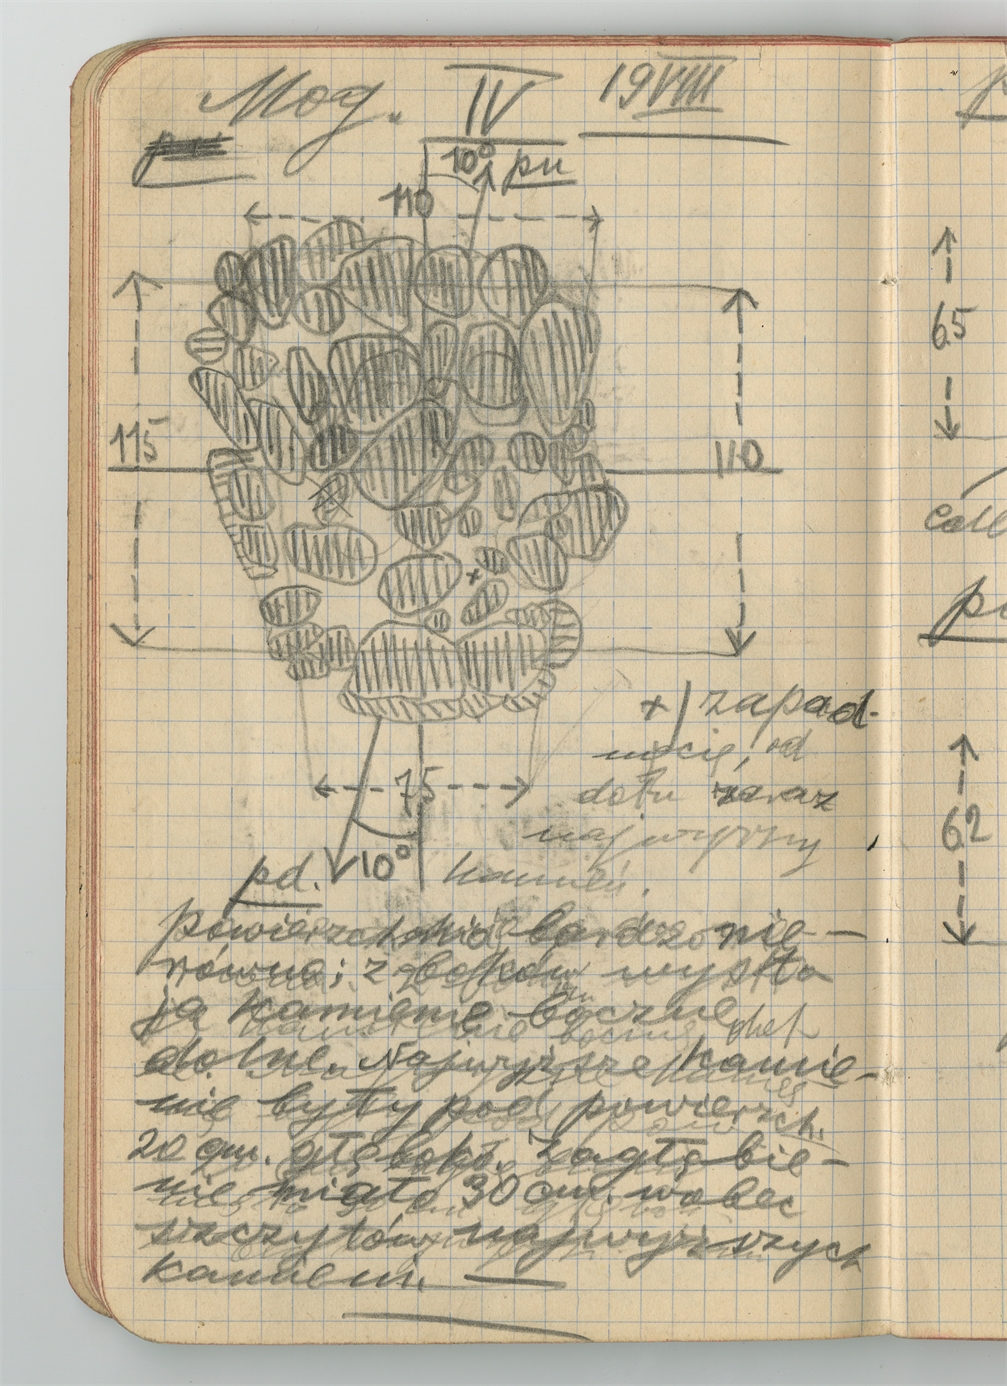 Mog. IV 19 VIII
10° pn
110
115
110
65
+/ zapad-
nięcie, od
dołu zaraz
najwyższy
kamień.
75
10°
pd.
62
Powierzchnia bardzo nie-
równa; z boków wysta
ją kamienie boczne,
dolne. Najwyższe kamie-
nie były pod powierzch.
20 cm. głębok. Zagłębie-
nie miało 30 cm. wobec
szczytów najwyższych
kamieni.